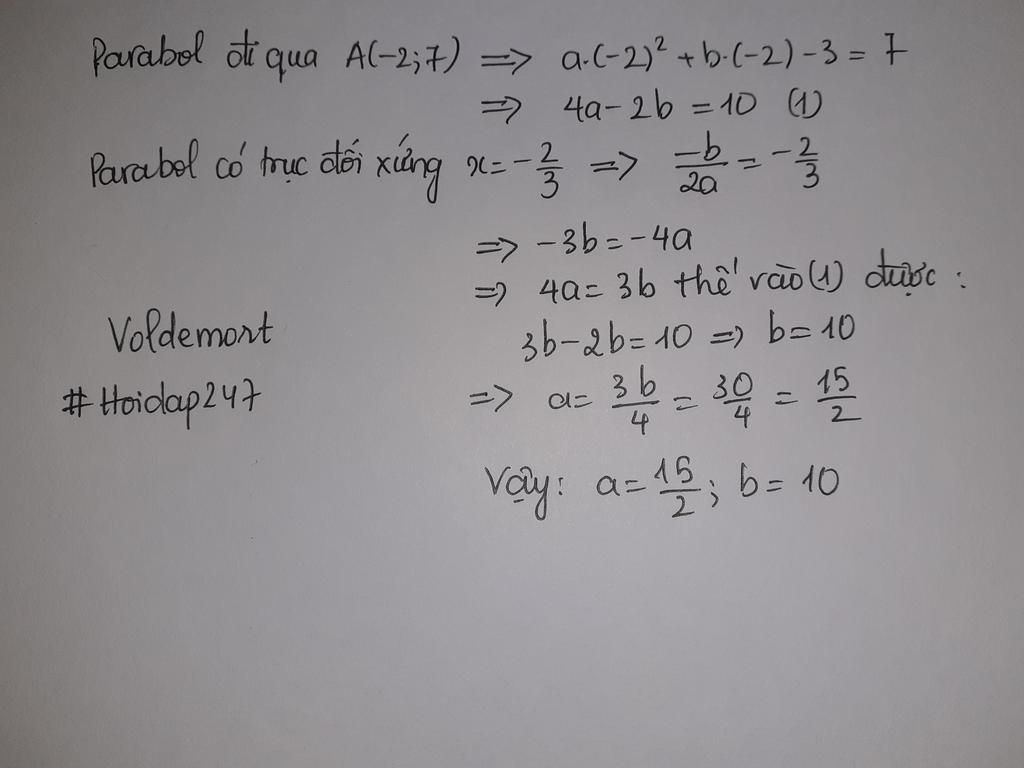 Parabol đi qua A(-2;7) => a.(-2)² + b.(-2) - 3 = 7
=> 4a - 2b = 10 (1)
Parabol có trục đối xứng x = -2/3 => -b/2a = -2/3
=> -3b = -4a
=> 4a = 3b thế vào (1) được :
Voldemort
3b - 2b = 10 => b = 10
#Hoidap247
=> a = 3b/4 = 30/4 = 15/2
Vậy: a = 15/2 ; b = 10